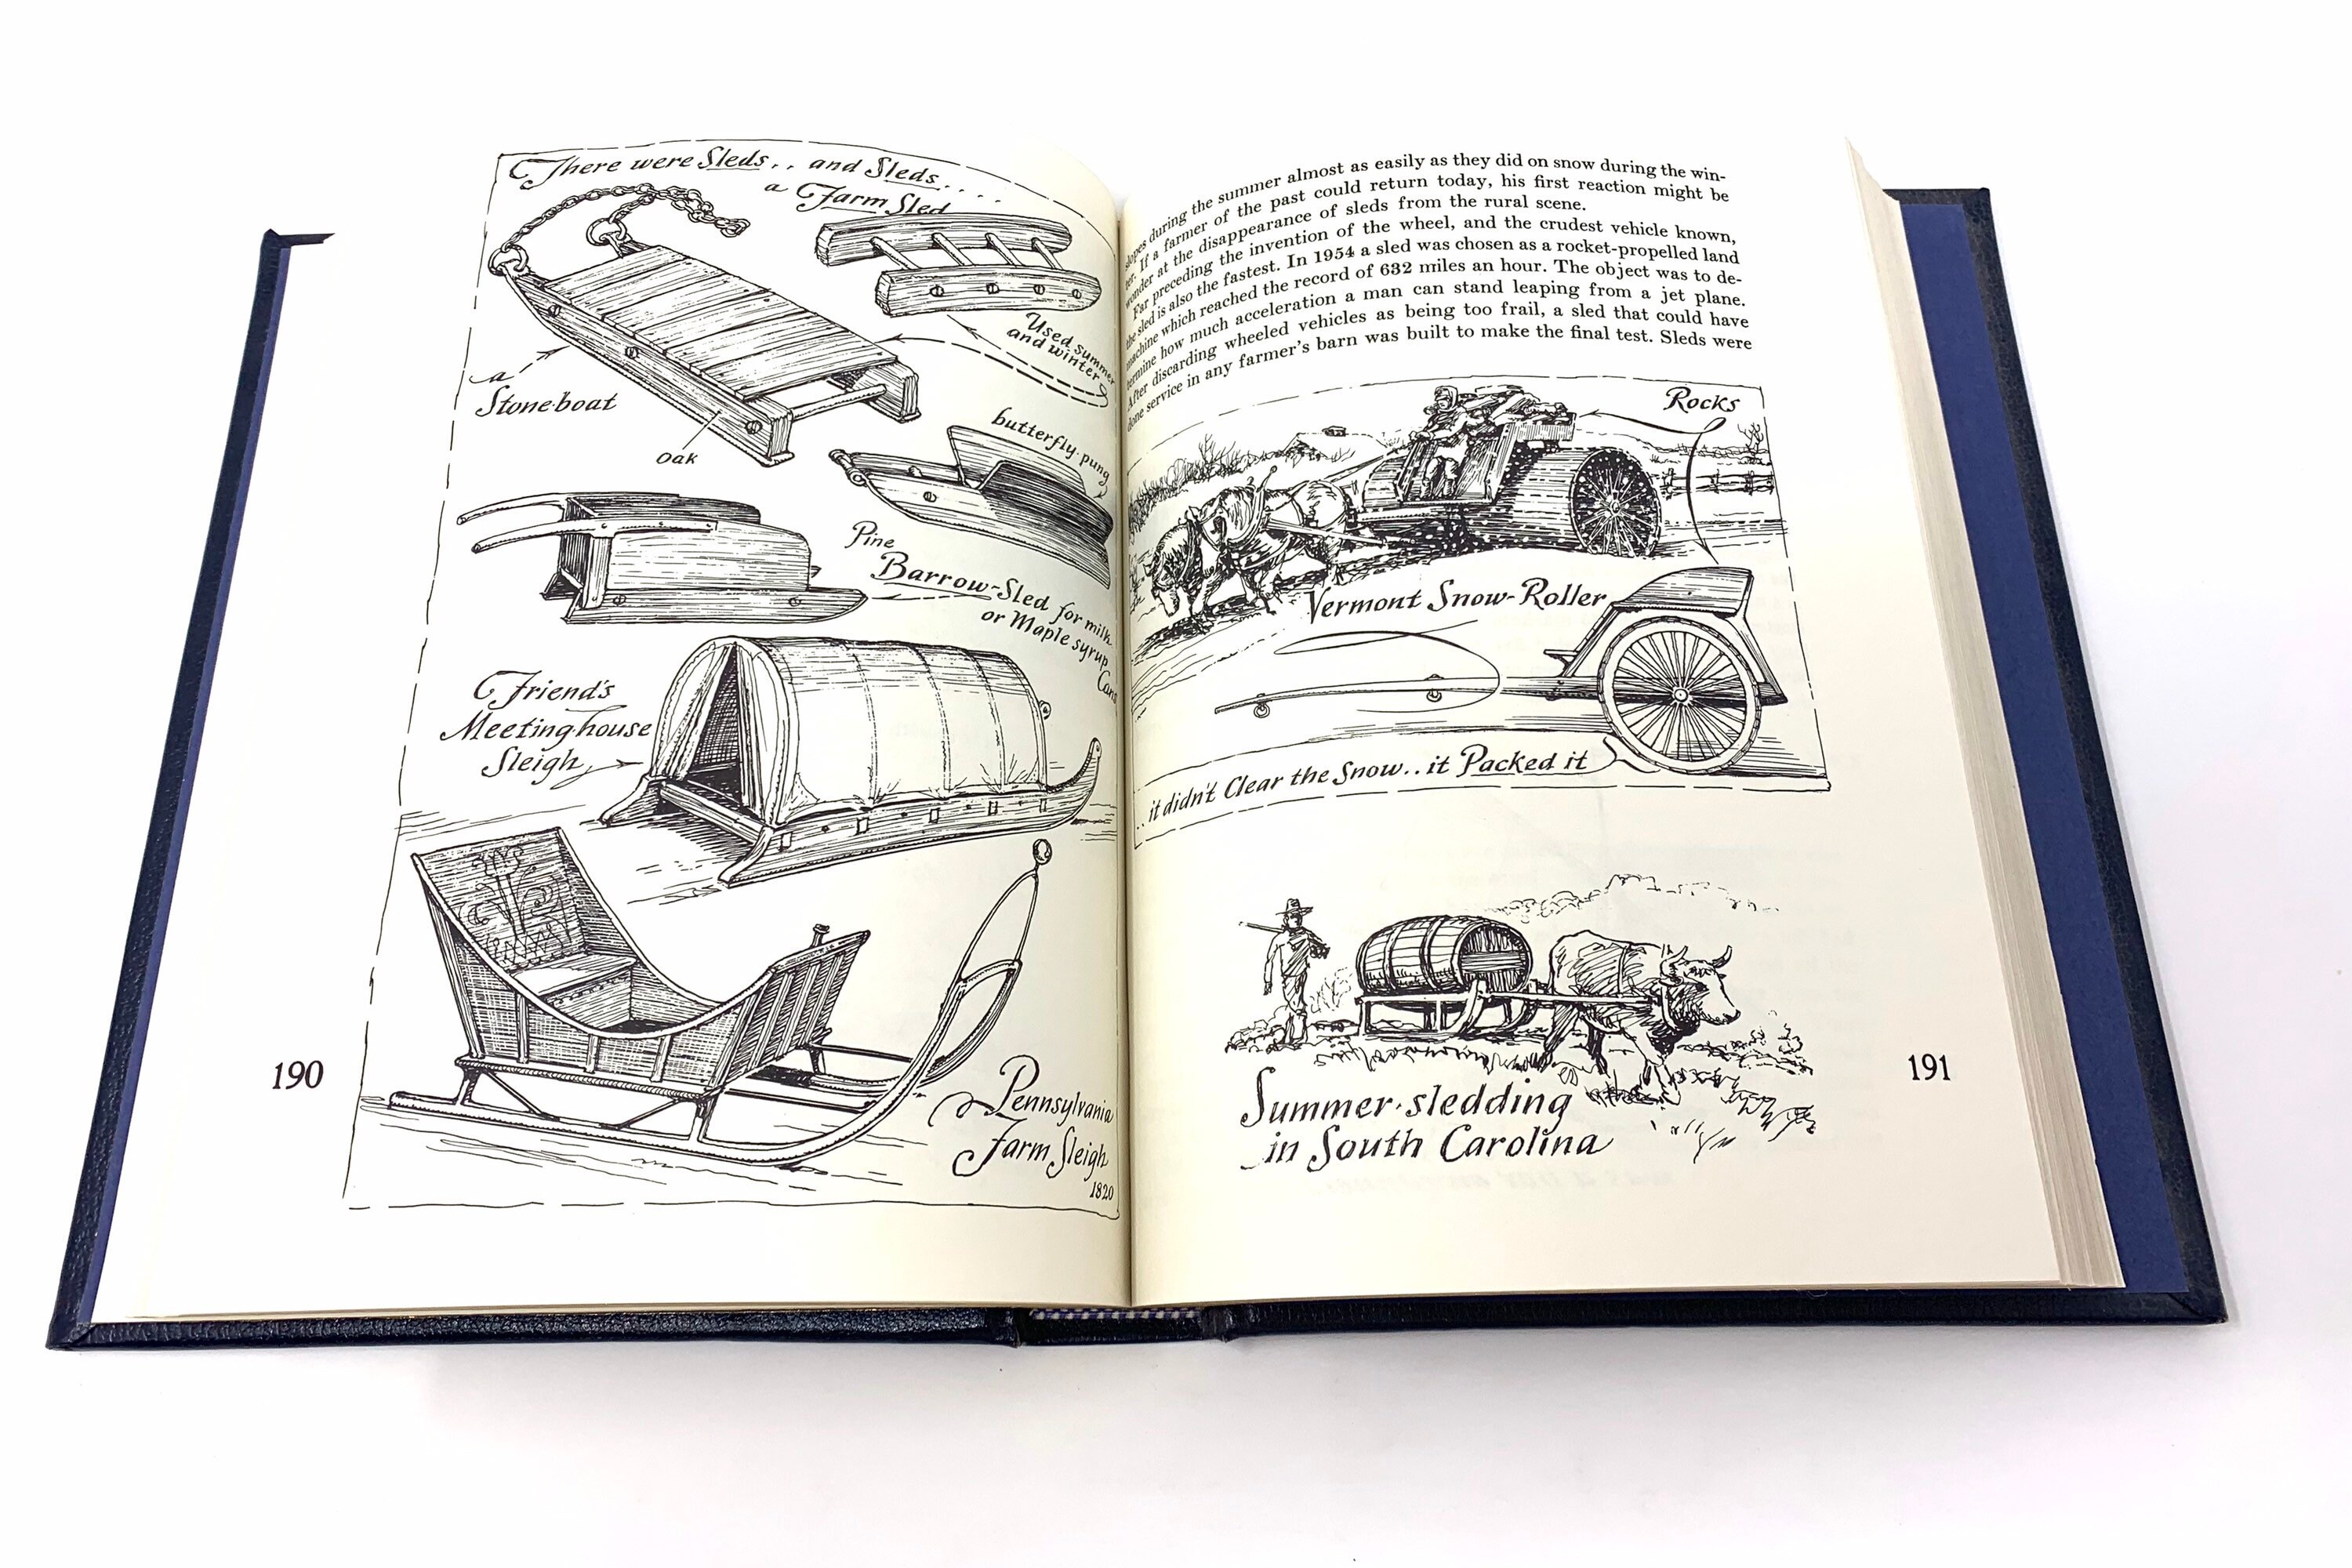 There were Sleds.. and Sleds....
a Farm Sled
Used summer
and winter
a
Stoneboat
Oak
butterfly-pung
Pine
Barrow-Sled for milk
or Maple syrup
Cans
Friend's
Meetinghouse
Sleigh
Pennsylvania
Farm Sleigh
1820
190
slopes during the summer almost as easily as they did on snow during the win-
ter. If a farmer of the past could return today, his first reaction might be
wonder at the disappearance of sleds from the rural scene.
Far preceding the invention of the wheel, and the crudest vehicle known,
the sled is also the fastest. In 1954 a sled was chosen as a rocket-propelled land
machine which reached the record of 632 miles an hour. The object was to de-
termine how much acceleration a man can stand leaping from a jet plane.
After discarding wheeled vehicles as being too frail, a sled that could have
done service in any farmer's barn was built to make the final test. Sleds were
Rocks
Vermont Snow-Roller
..it didn't Clear the Snow..it Packed it
Summer-sledding
in South Carolina
191